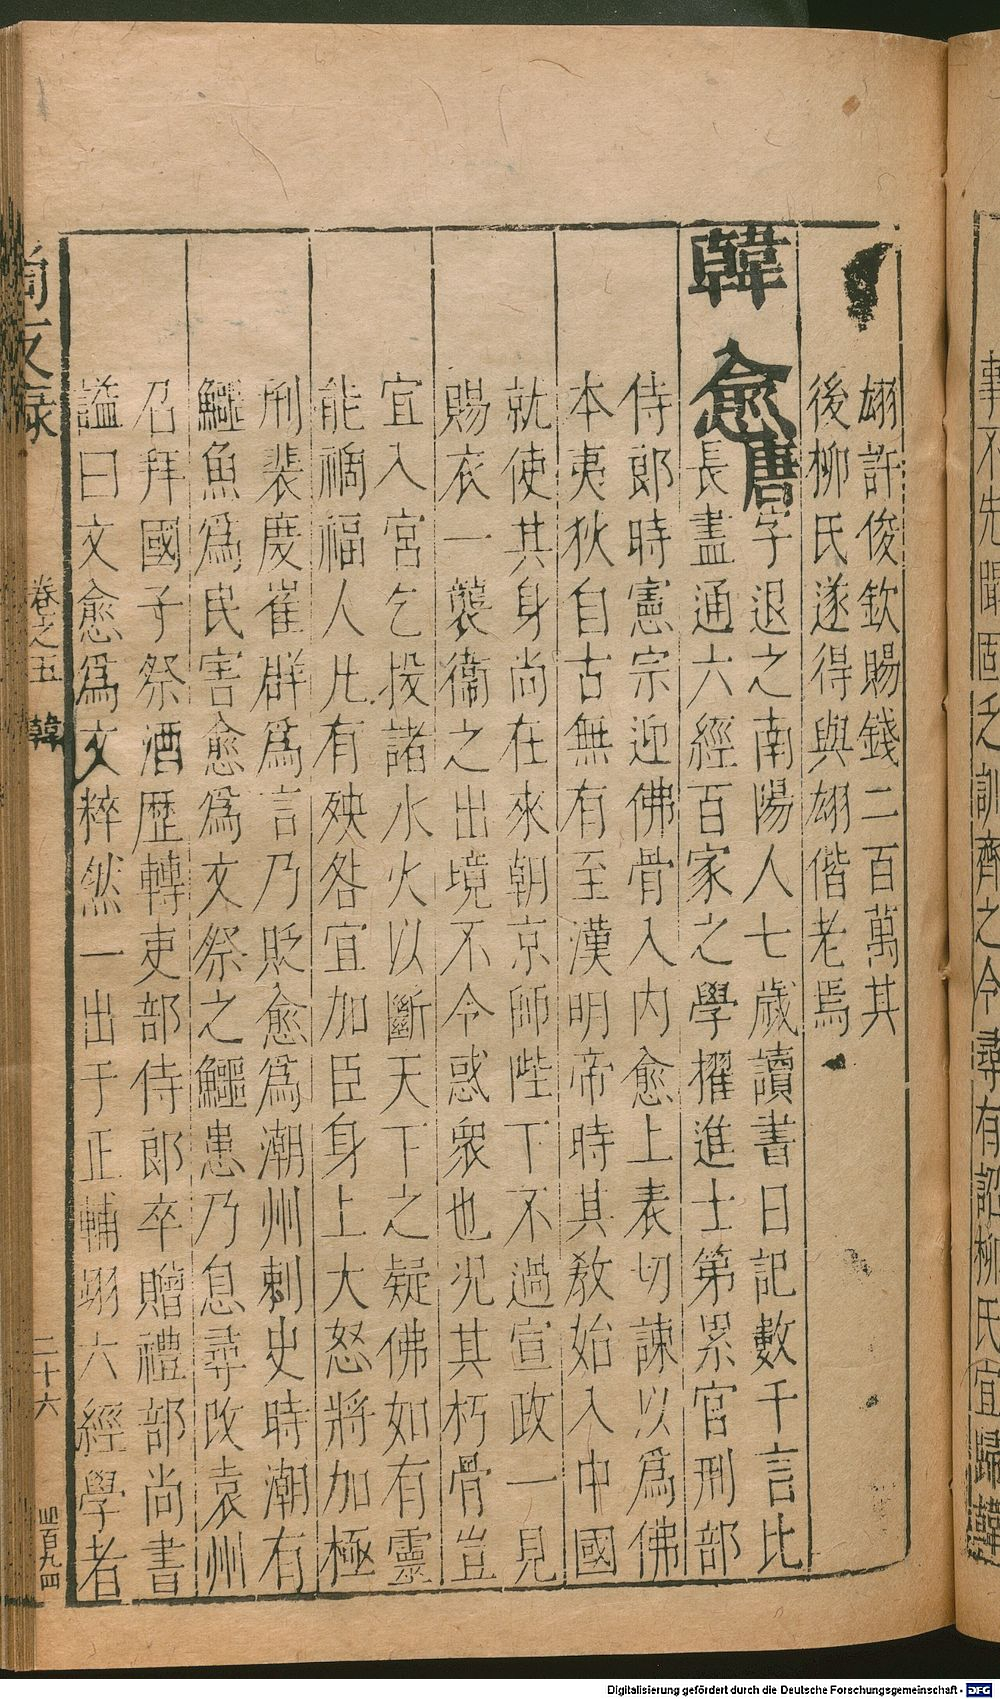 翃許俊欽賜錢二百萬其
後柳氏遂得與翃偕老焉
韓愈唐字退之南陽人七歲讀書日記數千言比
長盡通六經百家之學擢進士第累官刑部
侍郎時憲宗迎佛骨入內愈上表切諫以為佛
本夷狄自古無有至漢明帝時其教始入中國
就使其身尚在來朝京師陛下不過宣政一見
賜衣一襲衞之出境不令惑衆也況其朽骨豈
宜入宮乞投諸水火以斷天下之疑佛如有靈
能禍福人凡有殃咎宜加臣身上大怒將加極
刑裴度崔群為言乃貶愈為潮州刺史時潮有
鱷魚為民害愈為文祭之鱷患乃息尋改袁州
召拜國子祭酒歷轉吏部侍郎卒贈禮部尚書
謚曰文愈為文粹然一出于正輔翊六經學者
尚友錄 卷之五 韓 二十六
事不先聞固乏訓齊之令尋有詔柳氏宜歸韓
Digitalisierung gefördert durch die Deutsche Forschungsgemeinschaft - DFG